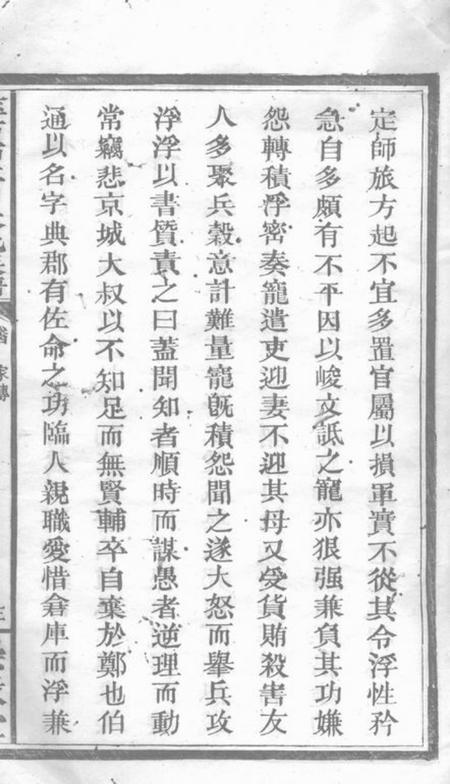 定師旅方起不宜多置官屬以損軍實不從其令浮性矜
急自多頗有不平因以峻文詆之寵亦狠强兼負其功嫌
怨轉積浮密奏寵遣吏迎妻不迎其母又受貨賄殺害友
人多聚兵穀意計難量寵旣積怨聞之遂大怒而舉兵攻
浮浮以書質責之曰蓋聞知者順時而謀愚者逆理而動
常竊悲京城大叔以不知足而無賢輔卒自棄於鄭也伯
通以名字典郡有佐命之功臨人親職愛惜倉庫而浮兼
家傳